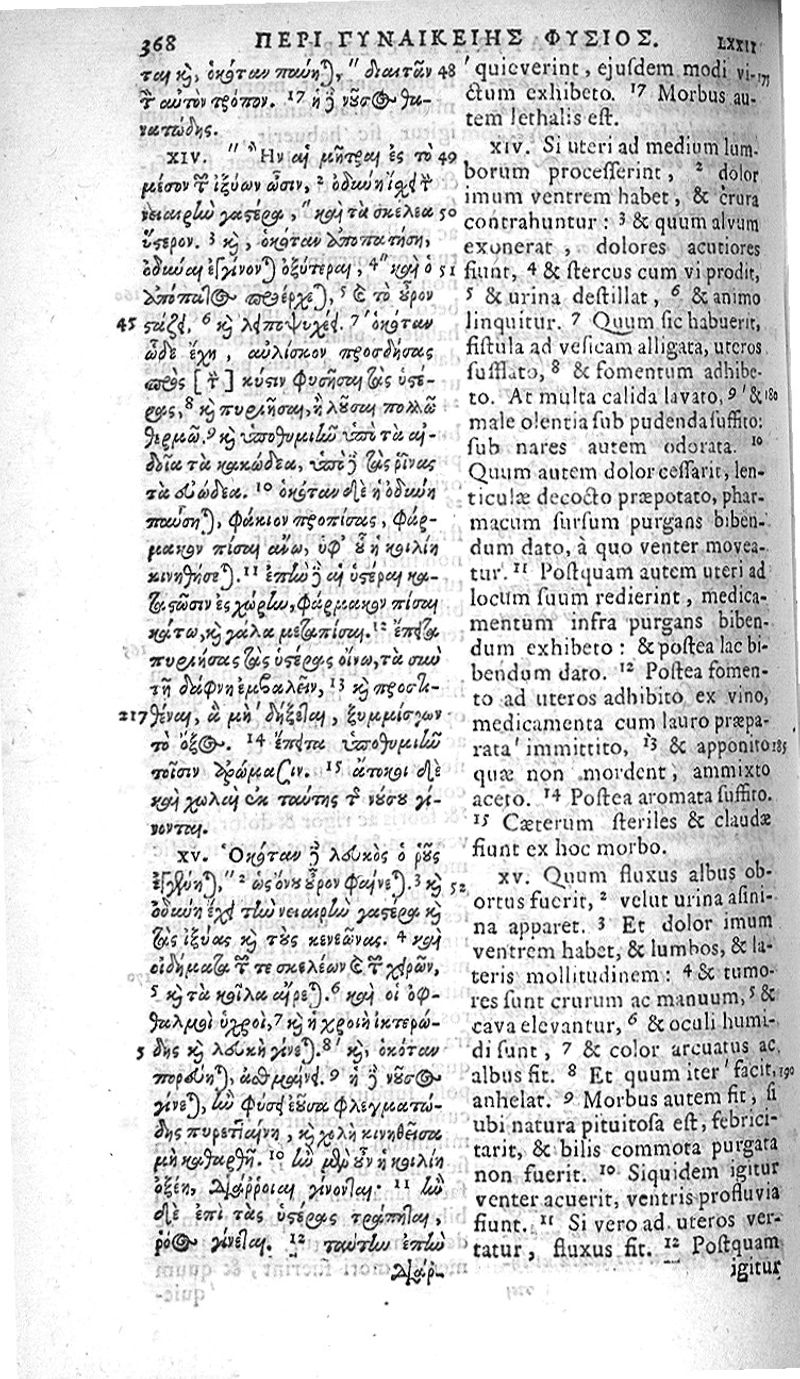 368 ΠΕΡΙ ΓΥΝΑΙΚΕΙΗΣ ΦΥΣΙΟΣ. LXXII
ται κỳ, ὁκόταν παύηται, " διαιτᾶν 48
τ̃ αὐτὸν τρόπον. 17 ἡ δὲ νοῦσος θα-
νατώδης.
XIV. " Ἢν αἱ μῆτραι ἐς τὸ 49
μέσον τ̃ ἰξύων ὦσιν, 2 ὀδύνη ἴσχει τ̃
νειαιρίω γαστέρα, " καὶ τὰ σκέλεα 50
ὕστερον. 3 κỳ, ὁκόταν ἀποπατήση,
ὀδύναι ἐγγίνονται ὀξύτεραι, 4" καὶ ὁ 51
ἀπόπατος προέρχεται, 5 καὶ τὸ οὖρον
45 στάζει, 6 κỳ λειποψυχέει. 7 ὁκόταν
ὧδε ἔχη, αὐλίσκον προσδήσας
πρὸς [τ̃] κύσιν φυσῆσαι τὰς ὑστέ-
ρας, 8 κỳ πυριῆσαι, ἢ λοῦσαι πολλῶ
θερμῶ. 9 κỳ ὑποθυμιῆν ὑπὸ τὰ αἰ-
δοῖα τὰ κακώδεα, ὑπὸ δὲ τὰς ῥῖνας
τὰ εὐώδεα. 10 ὁκόταν δὲ ἡ ὀδύνη
παύσηται, φάκιον προπίσας, φάρ-
μακον πίσαι ἄνω, ὑφ' οὗ ἡ κοιλίη
κινηθήσεται. 11 ἐπὴν δὲ αἱ ὑστέραι κα-
τασῶσιν ἐς χώρην, φάρμακον πίσαι
κάτω, κỳ γάλα μεταπίσαι. 12 ἔπειτα
πυριήσας τὰς ὑστέρας οἴνω, τὰ σὺν
τῆ δάφνη ἐμβαλεῖν, 13 κỳ προστι-
217 θέναι, ἃ μὴ δήξεται, ξυμμίσγων
τὸ ὄξος. 14 ἔπειτα ὑποθυμιῆν
τοῖσιν ἀρώμασιν. 15 ἄτοκοι δὲ
καὶ χωλαὶ ἐκ ταύτης τ̃ νούσου γί-
νονται.
XV. Ὁκόταν δὲ λευκὸς ὁ ῥοῦς
ἐγγένηται, " 2 ὡς ὄνου οὖρον φαίνεται. 3 κỳ 52
ὀδύνη ἔχει τὴν νειαιρὴν γαστέρα κỳ
τὰς ἰξύας κỳ τοὺς κενεῶνας. 4 καὶ
οἰδήματα τῶν τε σκελέων καὶ τῶν χειρῶν,
5 κỳ τὰ κοῖλα αἴρεται. 6 καὶ οἱ ὀφ-
θαλμοὶ ὑγροὶ, 7 κỳ ἡ χροιὴ ἰκτερώ-
5 δης κỳ λευκὴ γίνεται. 8 κỳ, ὁκόταν
πορεύηται, ἀσθμαίνει. 9 ἡ δὲ νοῦσος
γίνεται, ἢν φύσει ἐοῦσα φλεγματώ-
δης πυρεταίνη, κỳ χολὴ κινηθεῖσα
μὴ καθαρθῆ. 10 ἢν μὲν οὖν ἡ κοιλίη
ὀξέη, διάρροιαι γίνονται· 11 ἢν
δὲ ἐπὶ τὰς ὑστέρας τράπηται,
ῥόος γίνεται. 12 ταύτην ἐπὴν
διαρ-
quieverint, ejusdem modi vi- 175
ctum exhibeto. 17 Morbus au-
tem lethalis est.
XIV. Si uteri ad medium lum-
borum processerint, 2 dolor
imum ventrem habet, & crura
contrahuntur: 3 & quum alvum
exonerat, dolores acutiores
fiunt, 4 & stercus cum vi prodit,
5 & urina destillat, 6 & animo
linquitur. 7 Quum sic habuerit,
fistula ad vesicam alligata, uteros
sufflato, 8 & fomentum adhibe-
to. At multa calida lavato, 9 ' & 180
male olentia sub pudenda suffito:
sub nares autem odorata. 10
Quum autem dolor cessarit, len-
ticulæ decocto præpotato, phar-
macum sursum purgans biben-
dum dato, à quo venter movea-
tur. 11 Postquam autem uteri ad
locum suum redierint, medica-
mentum infra purgans biben-
dum exhibeto: & postea lac bi-
bendum dato. 12 Postea fomen-
to ad uteros adhibito ex vino,
medicamenta cum lauro præpa-
rata immittito, 13 & apponito 185
quæ non mordent, ammixto
aceto. 14 Postea aromata suffito.
15 Cæterum steriles & claudæ
fiunt ex hoc morbo.
XV. Quum fluxus albus ob-
ortus fuerit, 2 velut urina asini-
na apparet. 3 Et dolor imum
ventrem habet, & lumbos, & la-
teris mollitudinem: 4 & tumo-
res sunt crurum ac manuum, 5 &
cava elevantur, 6 & oculi humi-
di sunt, 7 & color arcuatus ac
albus fit. 8 Et quum iter ' facit, 190
anhelat. 9 Morbus autem fit, si
ubi natura pituitosa est, febrici-
tarit, & bilis commota purgata
non fuerit. 10 Siquidem igitur
venter acuerit, ventris profluvia
fiunt. 11 Si vero ad uteros ver-
tatur, fluxus fit. 12 Postquam
igitur